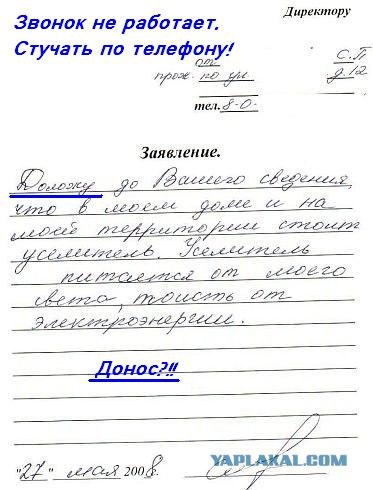 Звонок не работает.
Стучать по телефону!
Директору
от С.П
прож. по ул. д.12
тел. 8-0-
Заявление.
Доложу до Вашего сведения,
что в моем доме и на
моей территории стоит
уселитель. Уселитель
питается от моего
света, тоисть от
электроэнергии.
Донос?!!
"27" мая 2008.
YAPLAKAL.COM